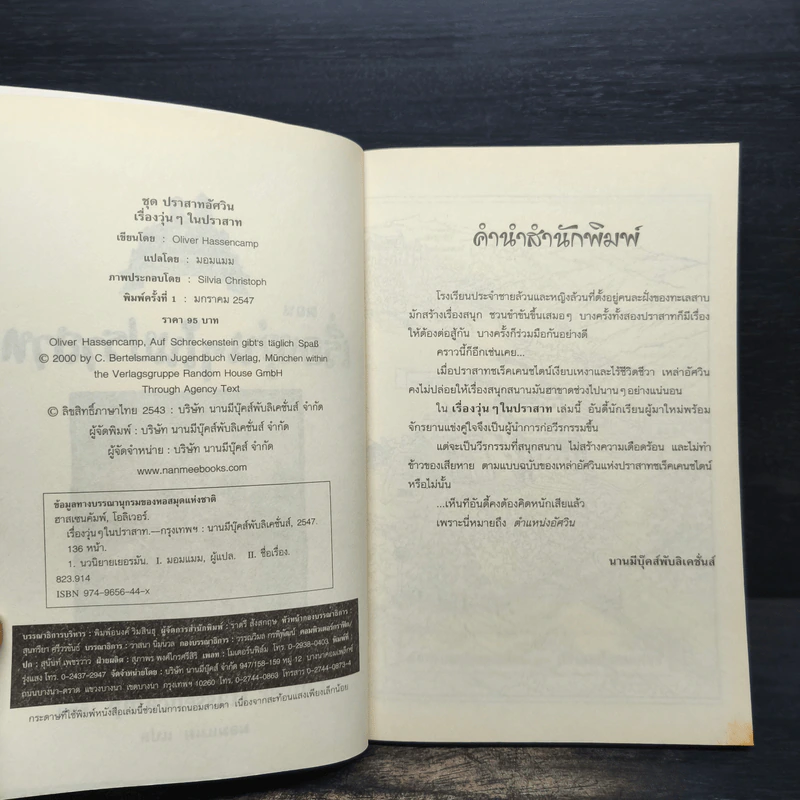 ชุด ปราสาทอัศวิน
เรื่องวุ่นๆ ในปราสาท
เขียนโดย : Oliver Hassencamp
แปลโดย : มอมแมม
ภาพประกอบโดย : Silvia Christoph
พิมพ์ครั้งที่ 1 : มกราคม 2547
ราคา 95 บาท
Oliver Hassencamp, Auf Schreckenstein gibt's täglich Spaß
© 2000 by C. Bertelsmann Jugendbuch Verlag, München within
the Verlagsgruppe Random House GmbH
Through Agency Text
© ลิขสิทธิ์ภาษาไทย 2543 : บริษัท นานมีบุ๊คส์พับลิเคชั่นส์ จำกัด
ผู้จัดพิมพ์ : บริษัท นานมีบุ๊คส์พับลิเคชั่นส์ จำกัด
ผู้จัดจำหน่าย : บริษัท นานมีบุ๊คส์ จำกัด
www.nanmeebooks.com
ข้อมูลทางบรรณานุกรมของหอสมุดแห่งชาติ
ฮาสเซนคัมพ์, โอลิเวอร์.
เรื่องวุ่นๆ ในปราสาท.—กรุงเทพฯ : นานมีบุ๊คส์พับลิเคชั่นส์, 2547.
136 หน้า.
1. นวนิยายเยอรมัน. I. มอมแมม, ผู้แปล. II. ชื่อเรื่อง.
823.914
ISBN 974-9656-44-x
บรรณาธิการบริหาร : พิมพ์อนงค์ ริมสินธุ ผู้จัดการสำนักพิมพ์ : ราตรี สังสกฤษ หัวหน้ากองบรรณาธิการ :
สุนทรียา ศรีวรขันธ์ บรรณาธิการ : วาสนา นิ่มนวล กองบรรณาธิการ : วรรณวิมล กรพิพัฒน์ คอมพิวเตอร์กราฟิค/
ปก : สุนันท์ เพชรวาว ฝ่ายผลิต : สุภาพร พงศ์ไกรศรีสิริ เพลท : โมเดอร์นฟิล์ม โทร. 0-2938-0403 พิมพ์ที่ :
รุ่งแสง โทร. 0-2437-2947 จัดจำหน่ายโดย : บริษัท นานมีบุ๊คส์ จำกัด 947/158-159 หมู่ 12 บางนาคอมเพล็กซ์
ถนนบางนา-ตราด แขวงบางนา เขตบางนา กรุงเทพฯ 10260 โทร. 0-2744-0863 โทรสาร 0-2744-0873-4
กระดาษที่ใช้พิมพ์หนังสือเล่มนี้ช่วยในการถนอมสายตา เนื่องจากสะท้อนแสงเพียงเล็กน้อย
คำนำสำนักพิมพ์
โรงเรียนประจำชายล้วนและหญิงล้วนที่ตั้งอยู่คนละฝั่งของทะเลสาบ
มักสร้างเรื่องสนุก ชวนขำขันขึ้นเสมอๆ บางครั้งทั้งสองปราสาทก็มีเรื่อง
ให้ต้องต่อสู้กัน บางครั้งก็ร่วมมือกันอย่างดี
คราวนี้ก็อีกเช่นเคย...
เมื่อปราสาทชเร็คเคนชไตน์เงียบเหงาและไร้ชีวิตชีวา เหล่าอัศวิน
คงไม่ปล่อยให้เรื่องสนุกสนานมันฮาขาดช่วงไปนานๆ อย่างแน่นอน
ใน เรื่องวุ่นๆ ในปราสาท เล่มนี้ อันดี้นักเรียนผู้มาใหม่พร้อม
จักรยานแข่งคู่ใจจึงเป็นผู้นำการก่อวีรกรรมขึ้น
แต่จะเป็นวีรกรรมที่สนุกสนาน ไม่สร้างความเดือดร้อน และไม่ทำ
ข้าวของเสียหาย ตามแบบฉบับของเหล่าอัศวินแห่งปราสาทชเร็คเคนชไตน์
หรือไม่นั้น
...เห็นทีอันดี้คงต้องคิดหนักเสียแล้ว
เพราะนี่หมายถึง ตำแหน่งอัศวิน
นานมีบุ๊คส์พับลิเคชั่นส์